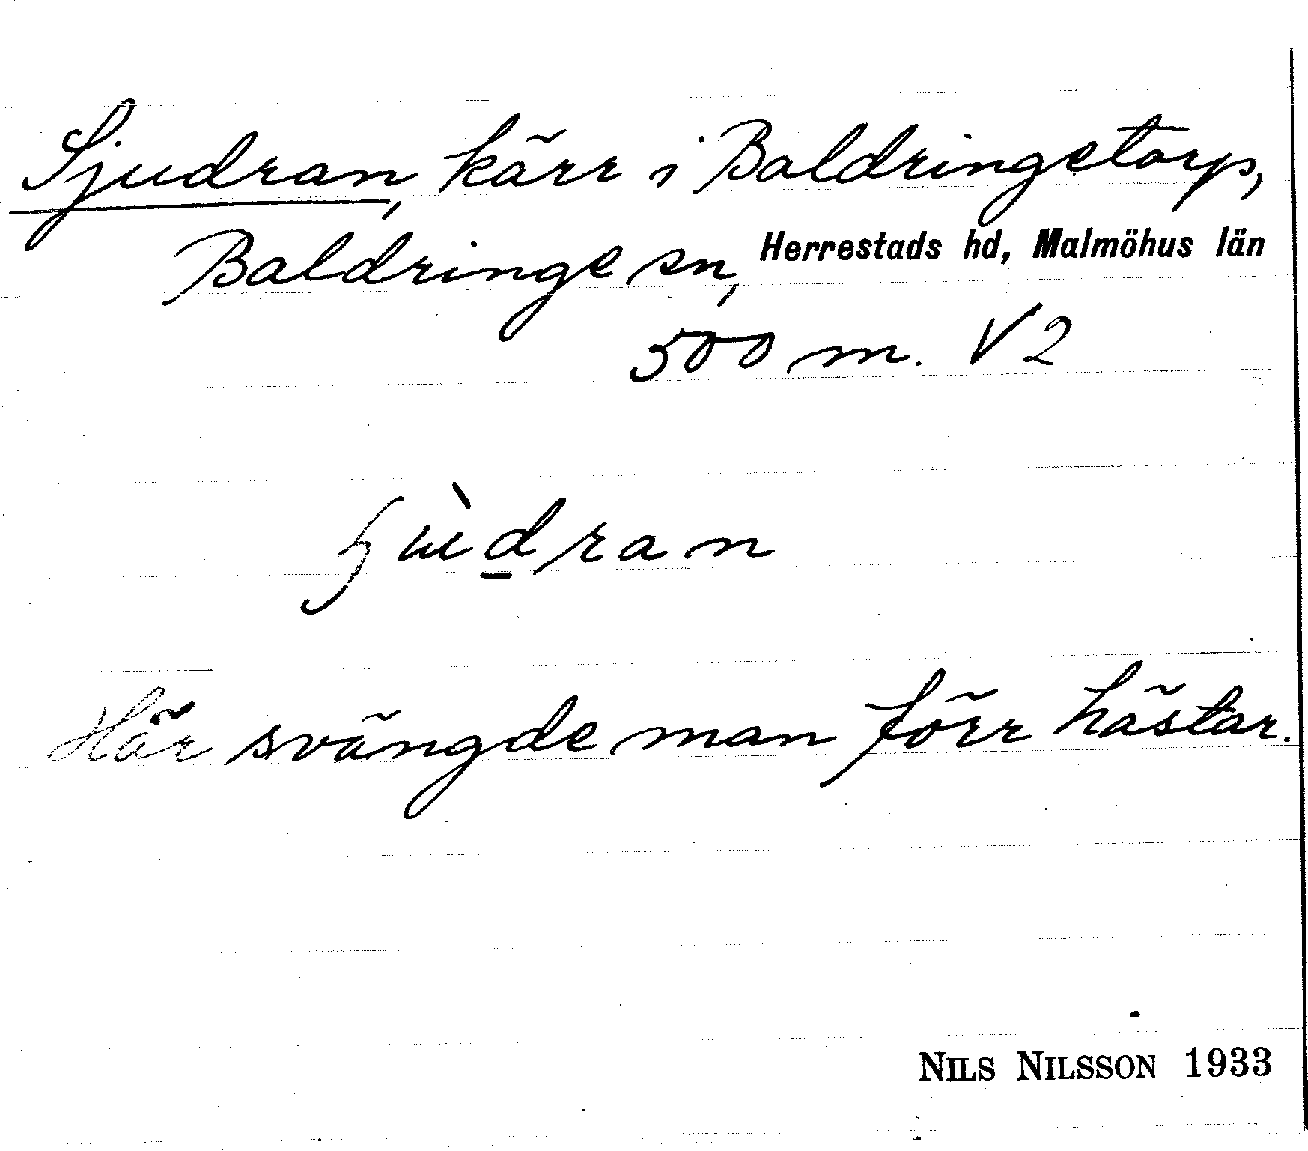 Sjudran, kärr i Baldringetorp,
Baldringe sn, Herrestads hd, Malmöhus län
500 m. V 2
Här svängde man förr hästar.
NILS NILSSON 1933